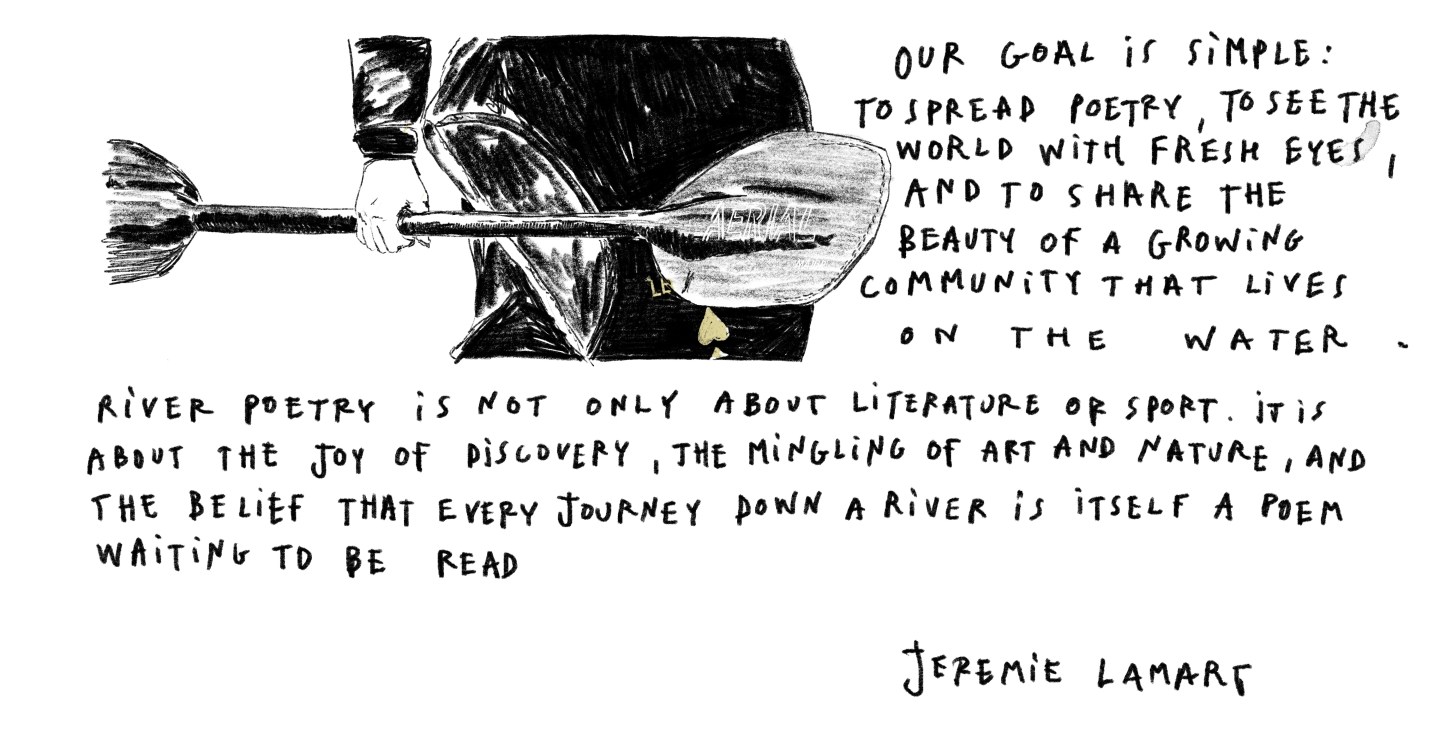 OUR GOAL iS SiMPLE:
TO SPREAD POETRY, TO SEE THE
WORLD WiTH FRESH EYES,
AND TO SHARE THE
BEAUTY OF A GROWiNG
COMMUNiTY THAT LiVES
ON THE WATER.
AERIAL
LE
RiVER POETRY iS NOT ONLY ABOUT LiTERATURE OR SPORT. iT iS
ABOUT THE JOY OF DiSCOVERY, THE MiNGLiNG OF ART AND NATURE, AND
THE BELiEF THAT EVERY JOURNEY DOWN A RiVER iS iTSELF A POEM
WAiTiNG TO BE READ
JEREMiE LAMART